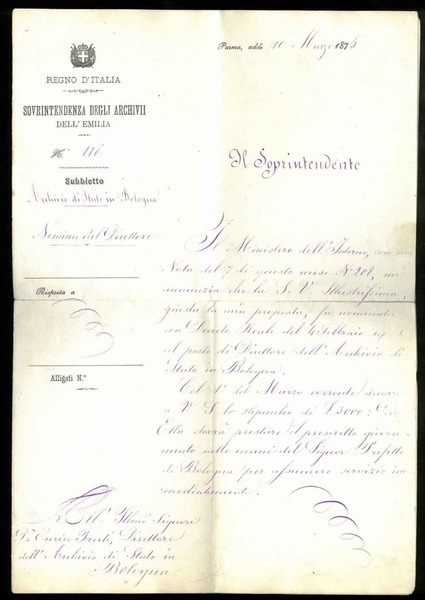 REGNO D'ITALIA
SOVRINTENDENZA DEGLI ARCHIVII
DELL' EMILIA
N.° 118
Subbietto
Archivio di Stato in Bologna
Nomina del Direttore
Risposta a
Alligati N.°
Parma, addì 10 Marzo 1875
Il Soprintendente
Il Ministero dell'Interno, con sua
Nota del 7 di questo mese N.° 208, mi
annunzia che la S. V. Illustrissima,
giusta la mia proposta, fu nominata
con Decreto Reale del 4 febbraio
al posto di Direttore dell'Archivio di
Stato in Bologna.
Col 1° del Marzo corrente decorre
a V. S. lo stipendio di L. 3000:
Ella dovrà prestare il prescritto giura-
mento nelle mani del Signor Prefetto
di Bologna per assumere servizio im-
mediatamente.
All' Illmo Signore
Dr. Enrico Dirett.
dell'Archivio di Stato in
Bologna